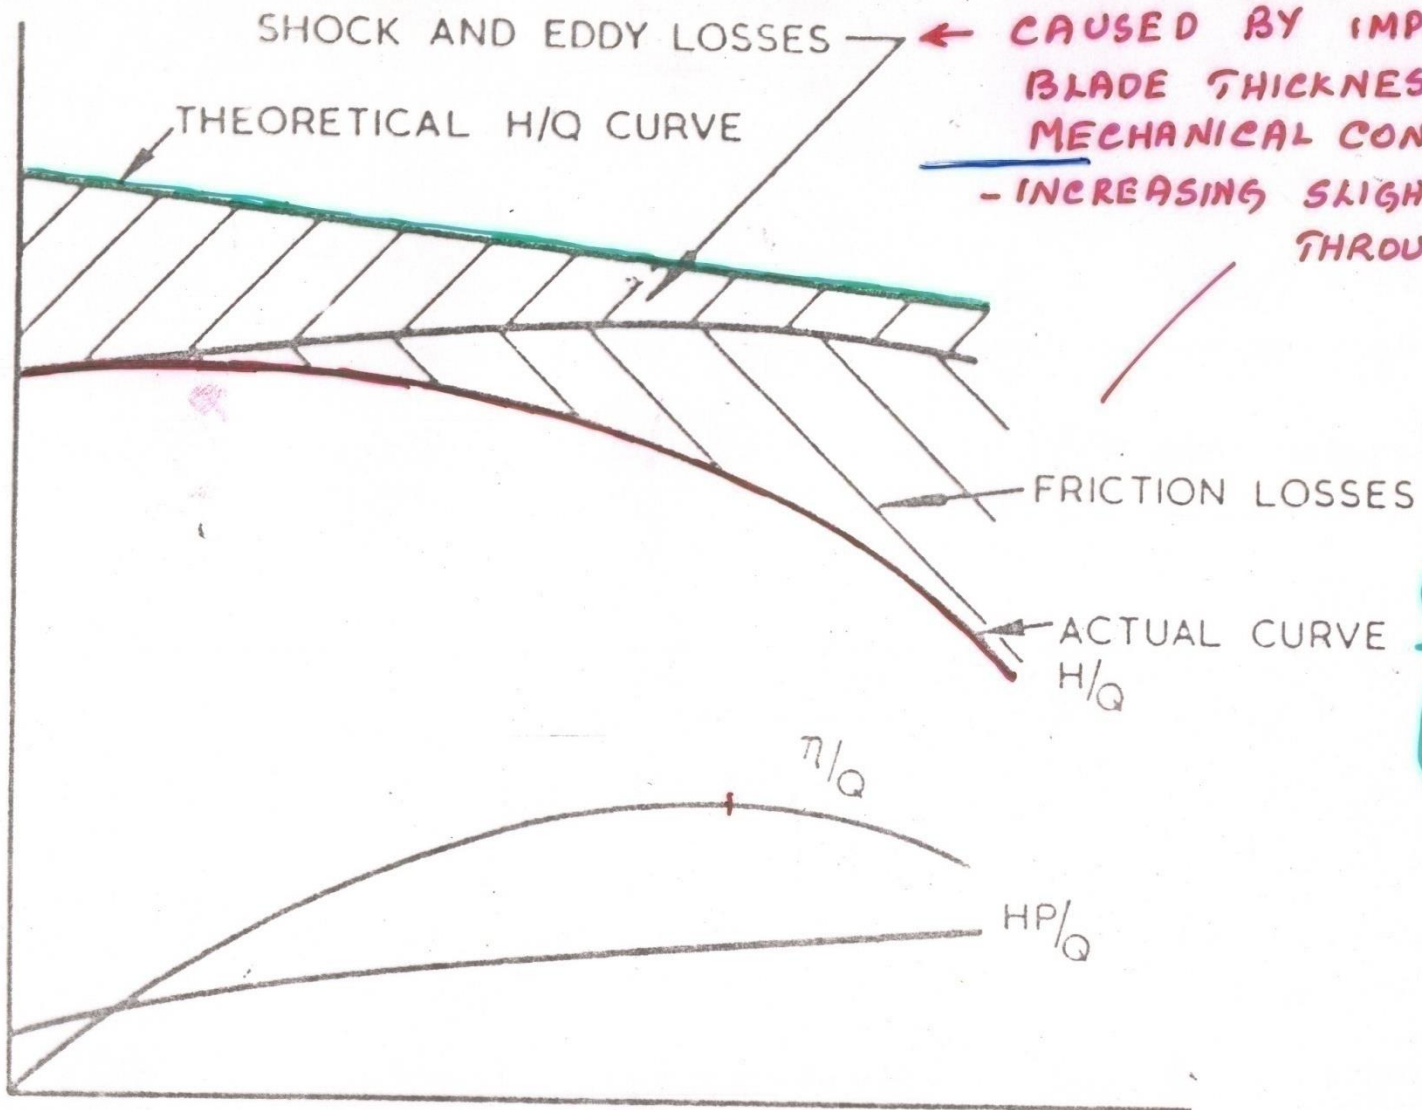 SHOCK AND EDDY LOSSES
← CAUSED BY IMP
BLADE THICKNES
MECHANICAL CON
- INCREASING SLIGH
THROU
THEORETICAL H/Q CURVE
FRICTION LOSSES
ACTUAL CURVE
H/Q
η/Q
HP/Q